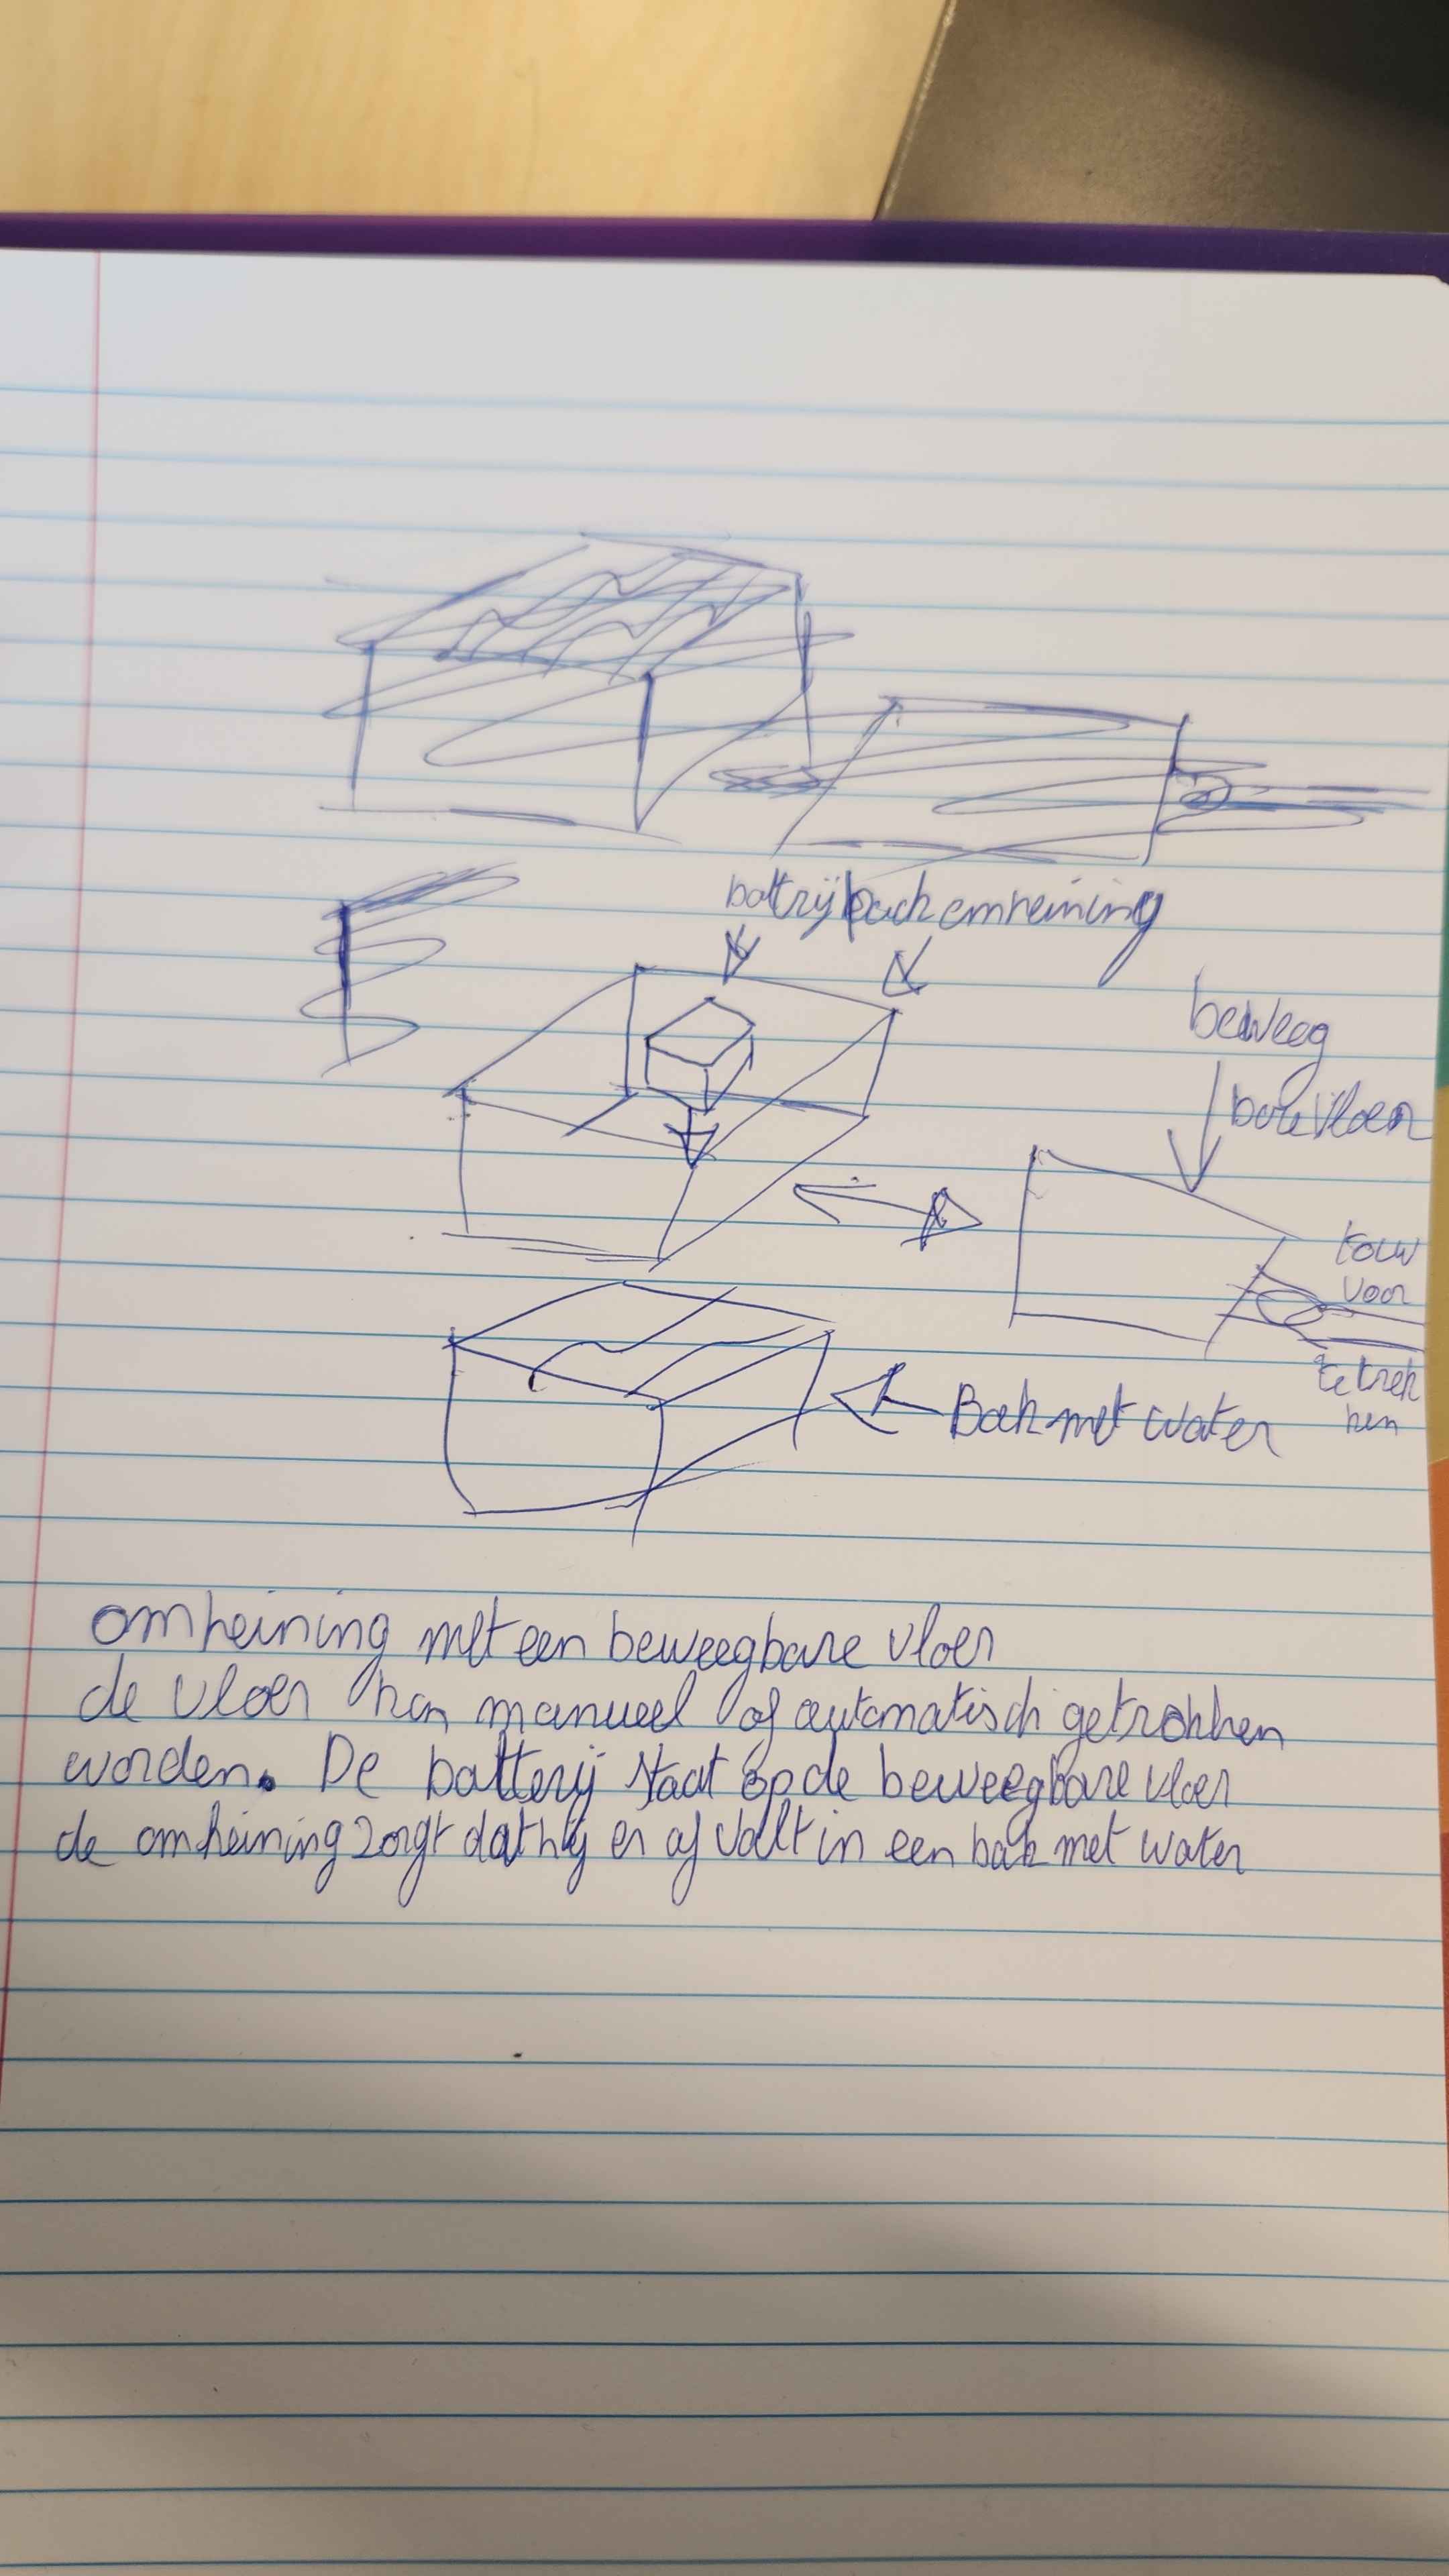 battrijpack omheining
beweeg
bare vloer
touw
voor
te trek
ken
Bak met water
omheining met een beweegbare vloer
de vloer kan manueel of automatisch getrokken
worden. De batterij staat op de beweegbare vloer
de omheining zorgt dat hij er af valt in een bak met water